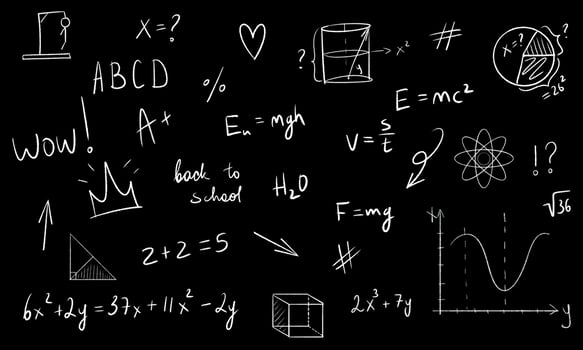 x=?
ABCD
%
? x²
#
x=? ?
=26²
E=mc²
WOW!
A+
Eₙ=mgh
v=s/t
back to
school
H₂O
F=mg
!?
√36
2+2=5
#
x
y
6x²+2y=37x+11x²-2y
2x³+7y